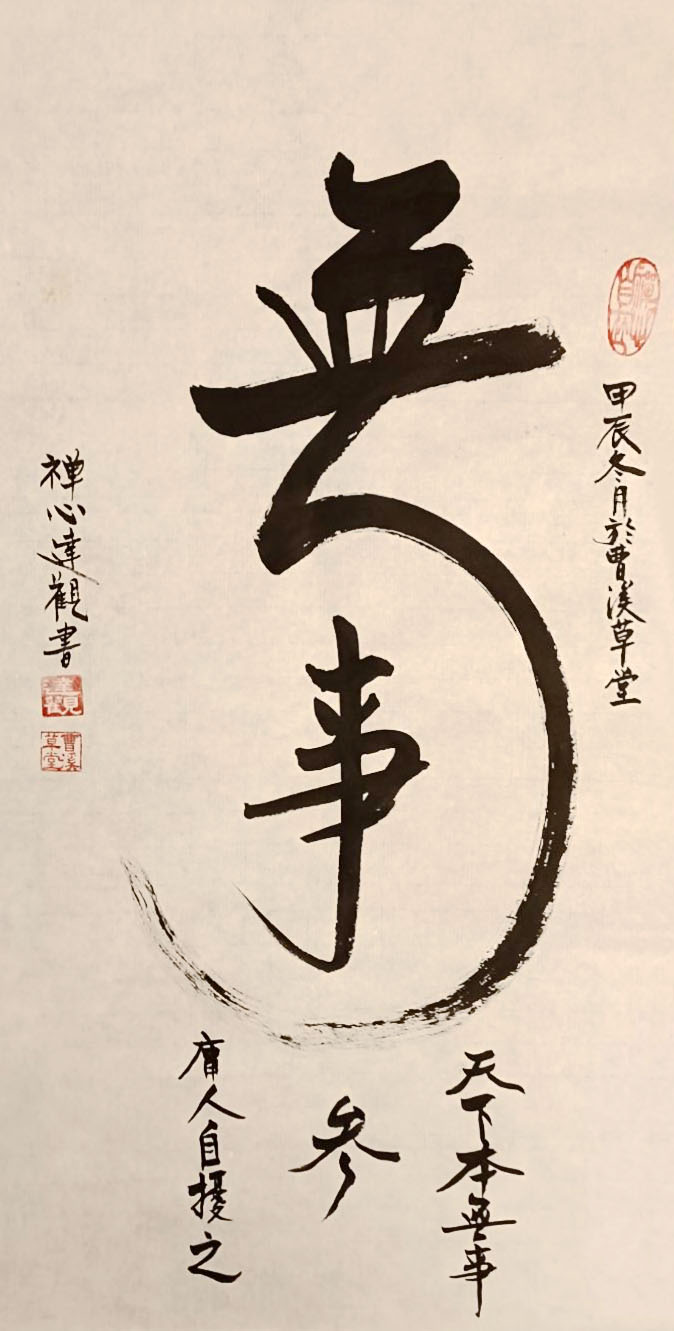 無事
天下本無事
參
庸人自擾之
甲辰冬月於曹溪草堂
禪心達觀書
達觀
曹溪草堂